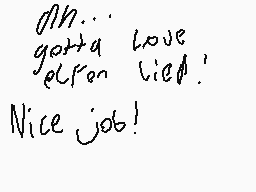 Ah...
gotta love
elfen lied!
Nice job!